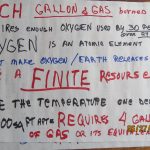 CH GALLON & GAS burned
IRES ENOUGH OXYGEN USED BY 30 PE
YGEN IS AN ATOMIC ELEMENT
T MAKE OXYGEN/EARTH RELEASES
A FINITE RESOURSE
E THE TEMPERATURE ONE DE
00 SQ FT APT REQUIRES 4 GAL
OF GAS OR ITS EQUIV